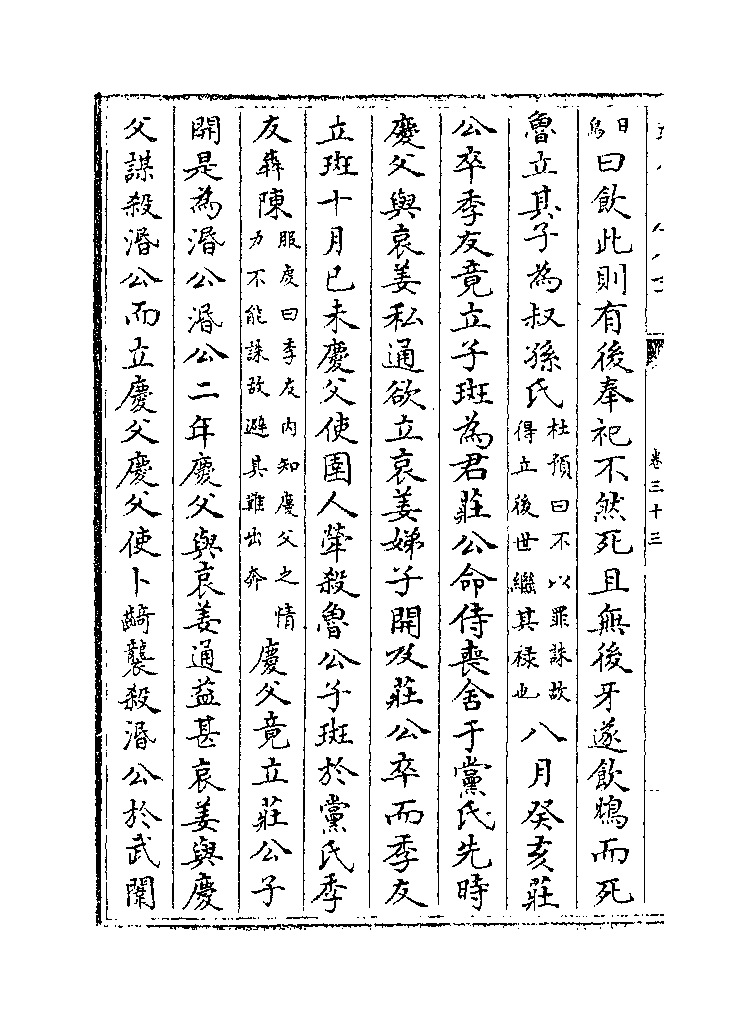 卷三十三
日鳥曰飲此則有後奉祀不然死且無後牙遂飲鴆而死
魯立其子為叔孫氏杜預曰不以罪誅故得立後世繼其祿也八月癸亥莊
公卒季友竟立子斑為君莊公命侍喪舍于黨氏先時
慶父與哀姜私通欲立哀姜娣子開及莊公卒而季友
立斑十月已未慶父使圉人犖殺魯公子斑於黨氏季
友犇陳服虔曰季友内知慶父之情力不能誅故避其難出奔慶父竟立莊公子
開是為湣公湣公二年慶父與哀姜通益甚哀姜與慶
父謀殺湣公而立慶父慶父使卜齮襲殺湣公於武闈